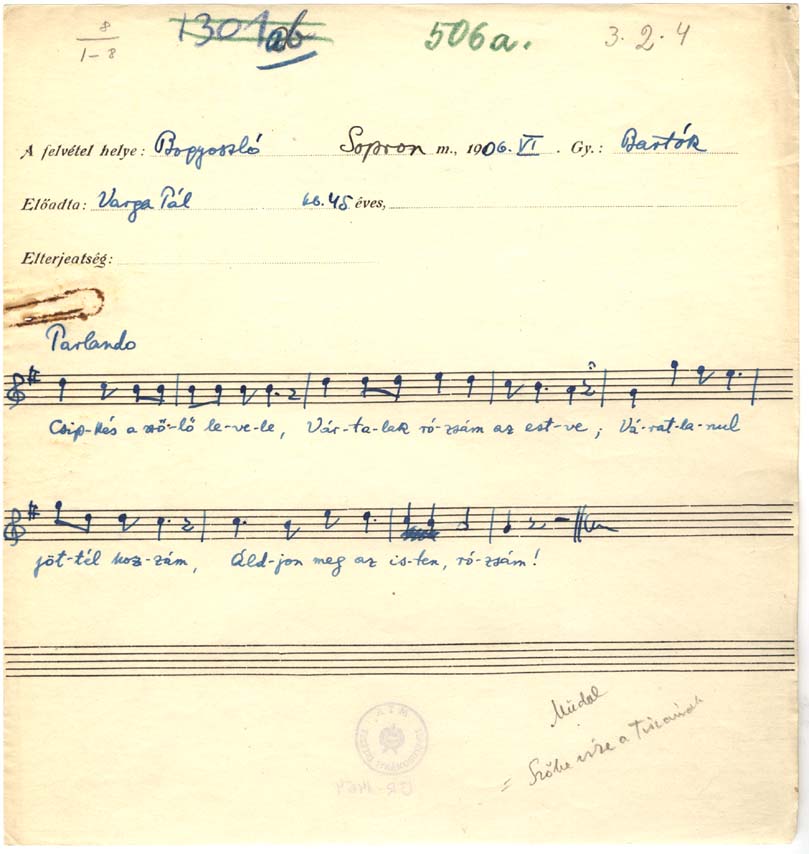 8
1-8
1301 ab
506a.
3. 2. 4
A felvétel helye: Bogyoszló Sopron m., 1906. VI. Gy.: Bartók
Előadta: Varga Pál kb. 45 éves,
Elterjeatség:
Parlando
Csip-kés a sző-lő le-ve-le, Vár-ta-lak ró-zsám az est-ve; Vá-rat-la-nul
jöt-tél hoz-zám, Áld-jon meg az is-ten, ró-zsám!
Műdal
= Szőke vize a Tiszának